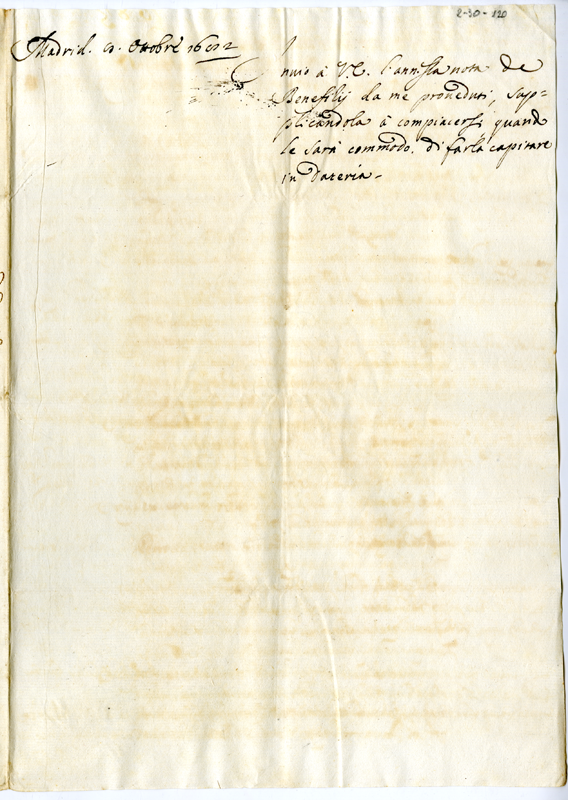 2-30-120
Madrid. 9. Ottobrè 1652
Inuio à V.E. l'annessa nota de
Benefitij da me proueduti, sup=
plicandola à compiacersi quando
le sarà commodo. di farla capitare
in Dateria.